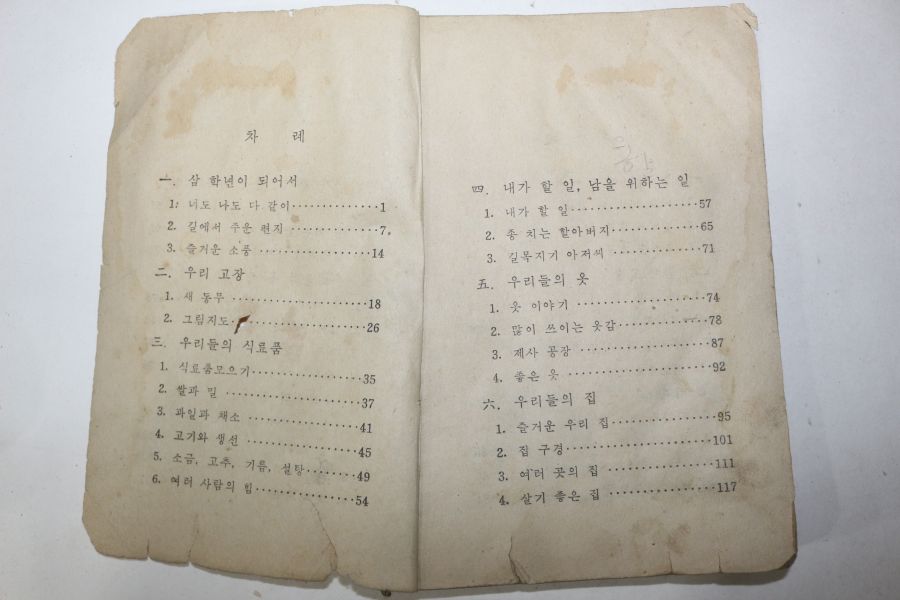 차 례
一. 삼 학년이 되어서
1. 너도 나도 다 같이……………1
2. 길에서 주운 편지……………7
3. 즐거운 소풍……………14
二. 우리 고장
1. 새 동무……………18
2. 그림지도……………26
三. 우리들의 식료품
1. 식료품모으기……………35
2. 쌀과 밀……………37
3. 과일과 채소……………41
4. 고기와 생선……………45
5. 소금, 고추, 기름, 설탕……………49
6. 여러 사람의 힘……………54
四. 내가 할 일, 남을 위하는 일
1. 내가 할 일……………57
2. 종 치는 할아버지……………65
3. 길목지기 아저씨……………71
五. 우리들의 옷
1. 옷 이야기……………74
2. 많이 쓰이는 옷감……………78
3. 제사 공장……………87
4. 좋은 옷……………92
六. 우리들의 집
1. 즐거운 우리 집……………95
2. 집 구경……………101
3. 여러 곳의 집……………111
4. 살기 좋은 집……………117